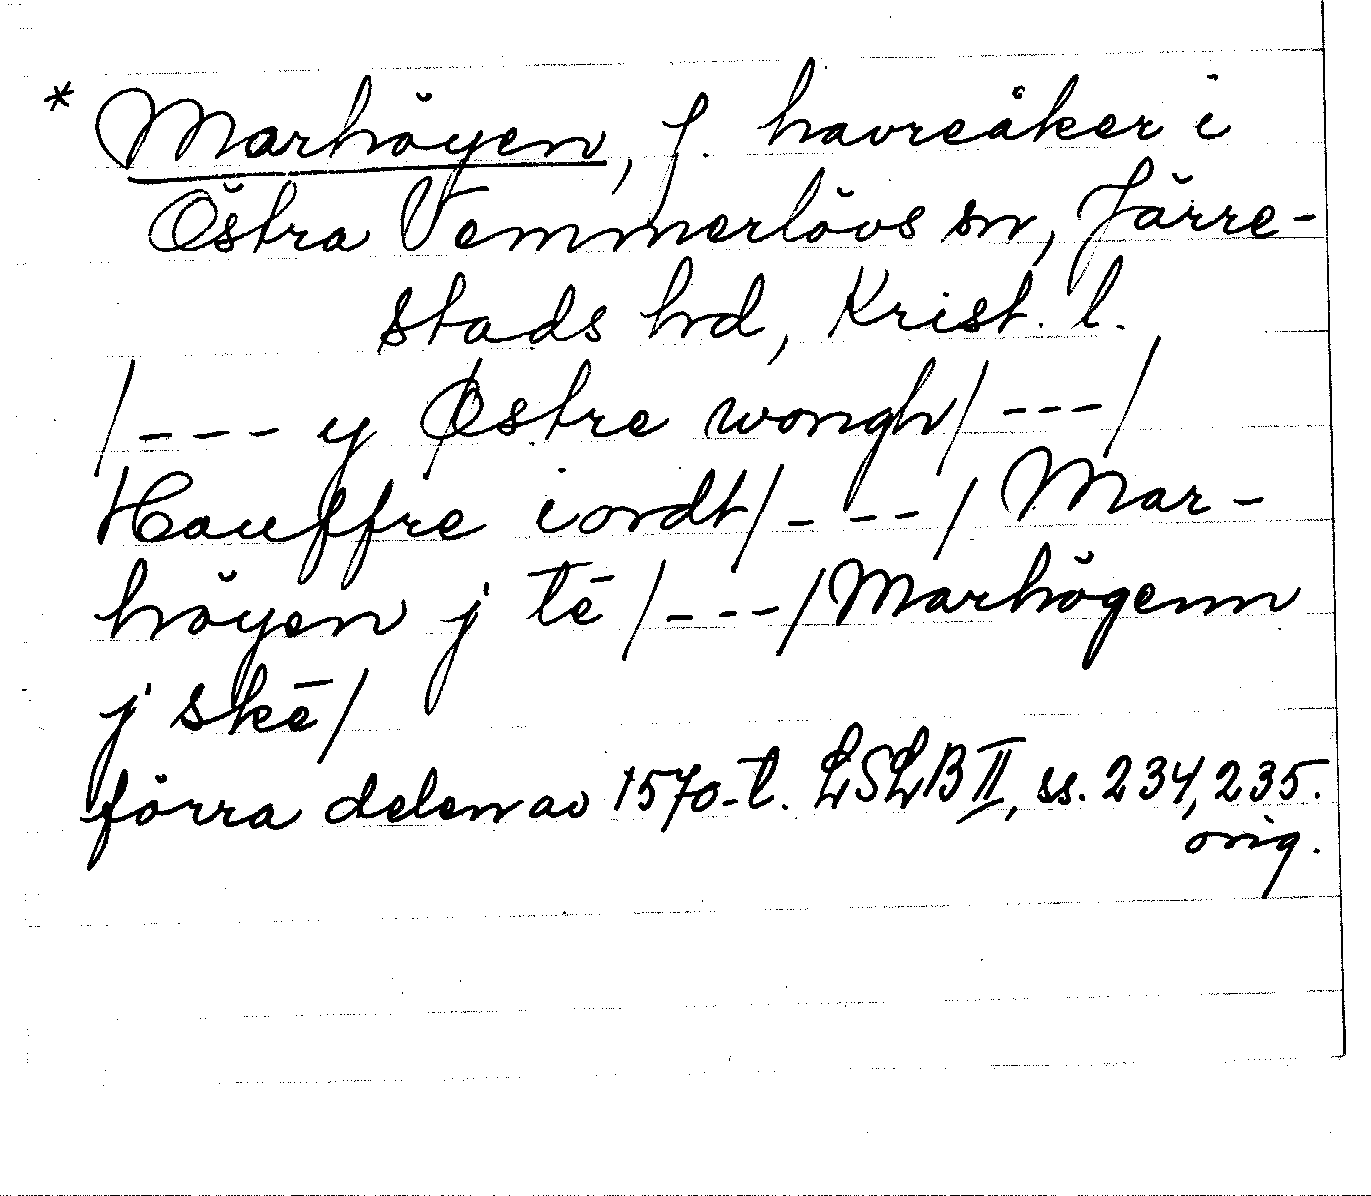 * Marhöyen, f. havreåker i
Östra Vemmerlövs sn, Järre-
stads hd, Krist. l.
/--- y Østre wongh/---/
Hauffre iordt/---/ Mar-
höyen j tē /---/ Marhögenn
j skē/
förra delen av 1570-t. LSLB II, ss. 234, 235.
orig.